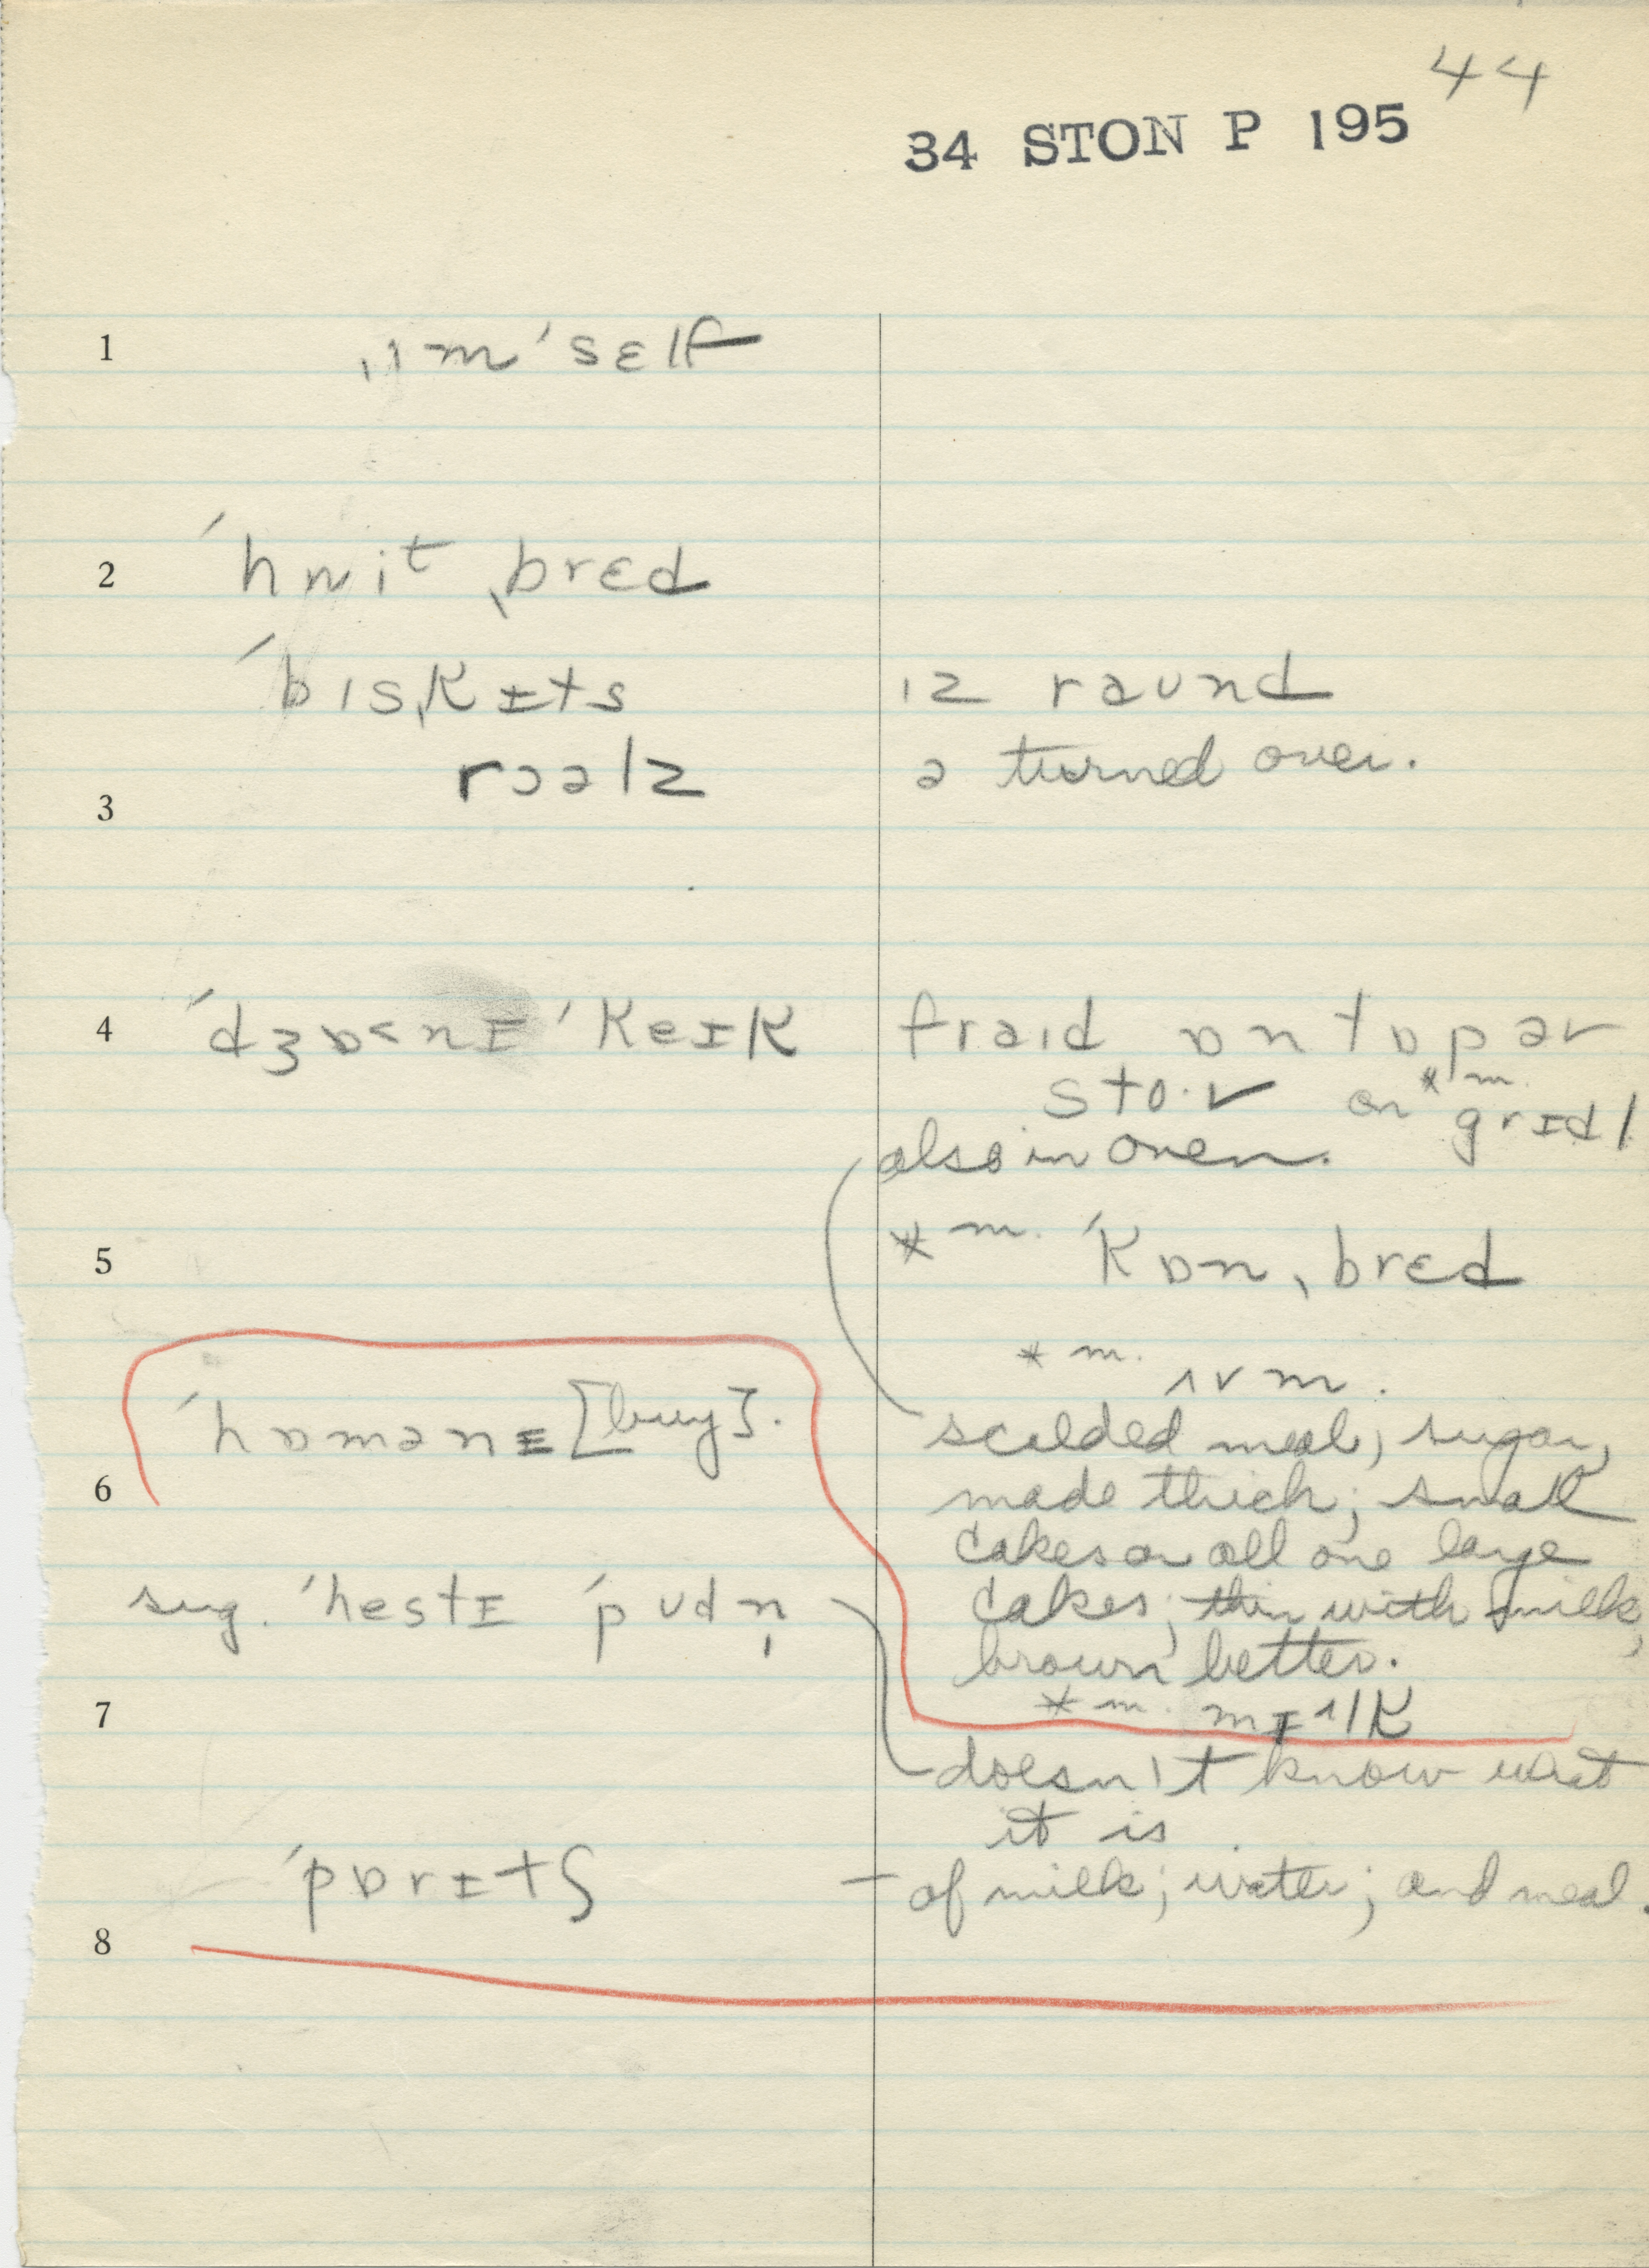 44
34 STON P 195
1 ˌɪm ˈsɛlf
2 ˈhʍit ˌbrɛd
ˈbɪsˌkɪts ɪz raund
rɔəlz ə turned over.
3
4 ˈdʒɒ˂nɪ ˈkeɪk fraɪd ɒn tɒp əv
sto·v on *m. grɪdl
also in oven.
5 *m. ˈkɒn ˌbrɛd
*m. ɪvm.
ˈhɒmənɪ [buy]. scalded meal; sugar,
6 made thick; small
cakes or all one large
sug. ˈhestɪ ˈpudn̩ cakes; thin with milk,
brown better.
7 *m. mɪlk
doesn't know what
it is.
ˈpɒrɪtʃ – of milk; water; and meal.
8